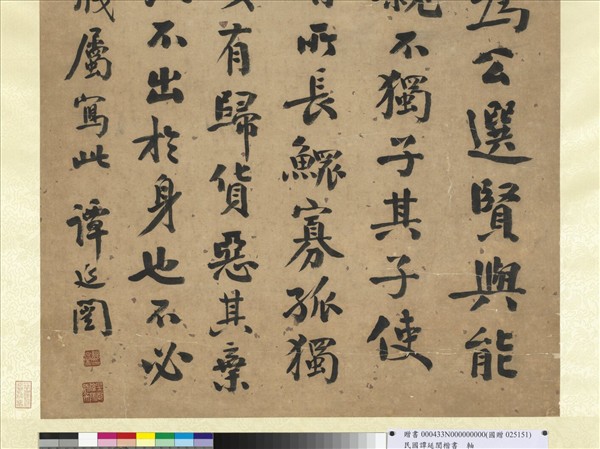 為公選賢與能
親不獨子其子使
有所長鰥寡孤獨
女有歸貨惡其棄
力不出於身也不必
屬寫此 譚延闓
贈書 000433N000000000(國贈 025151)
民國譚延闓楷書　軸